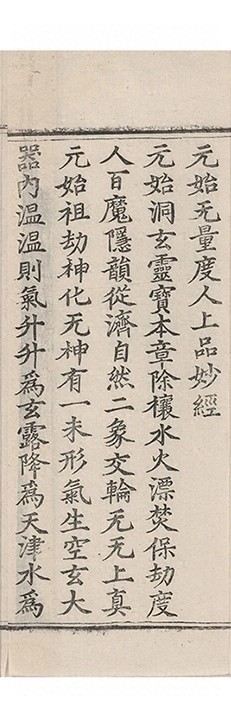 元始无量度人上品妙經
元始洞玄靈寳本章除禳水火漂焚保劫度
人百魔隱韻從濟自然二象交輪无无上真
元始祖劫神化无神有一未形氣生空玄大
器内温温則氣升升爲玄露降爲天津水爲